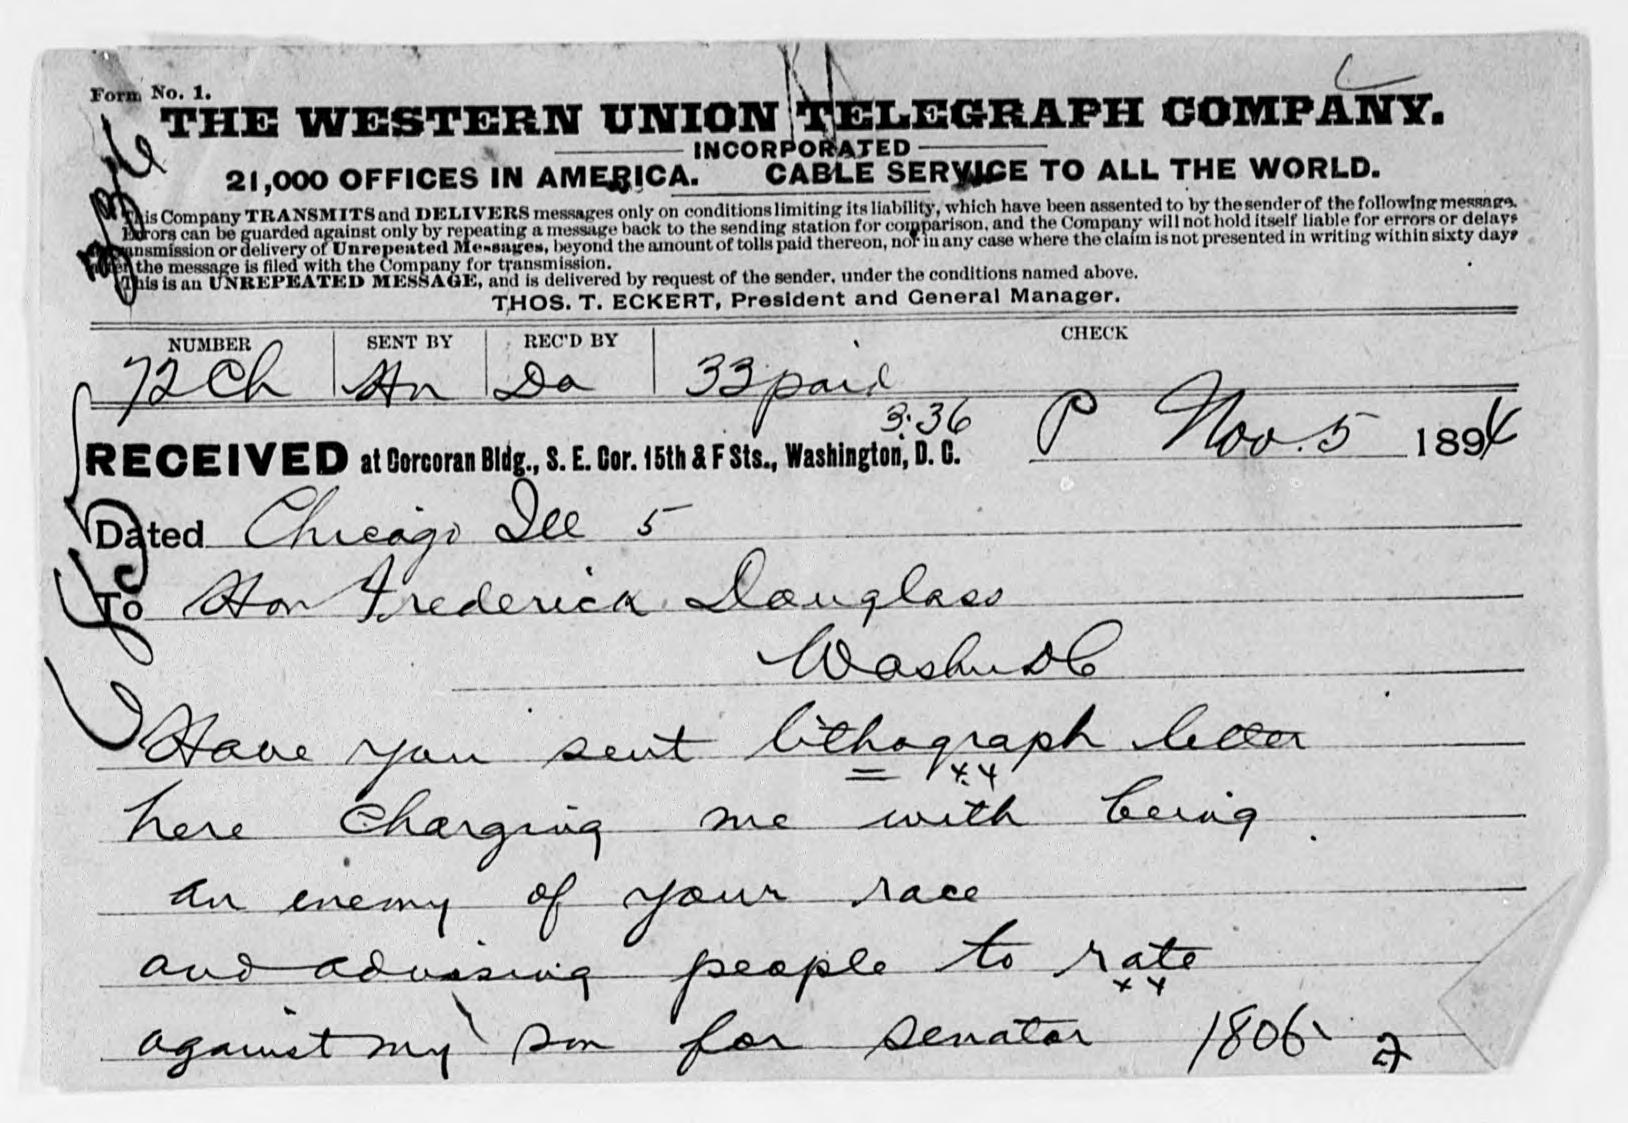 Form No. 1.
THE WESTERN UNION TELEGRAPH COMPANY.
INCORPORATED
21,000 OFFICES IN AMERICA. CABLE SERVICE TO ALL THE WORLD.
This Company TRANSMITS and DELIVERS messages only on conditions limiting its liability, which have been assented to by the sender of the following message.
Errors can be guarded against only by repeating a message back to the sending station for comparison, and the Company will not hold itself liable for errors or delays
transmission or delivery of Unrepeated Messages, beyond the amount of tolls paid thereon, nor in any case where the claim is not presented in writing within sixty days
after the message is filed with the Company for transmission.
This is an UNREPEATED MESSAGE, and is delivered by request of the sender, under the conditions named above.
THOS. T. ECKERT, President and General Manager.
NUMBER SENT BY REC'D BY CHECK
72 Ch Hn Da 33 paid
3.36 P Nov. 5 1894
RECEIVED at Corcoran Bldg., S. E. Cor. 15th & F Sts., Washington, D. C.
Dated Chicago Ill 5
To Hon Frederick Douglass
Washn DC
Have you sent lithograph letter
here charging me with being
an enemy of your race
and advising people to rate
against my son for senator 1806